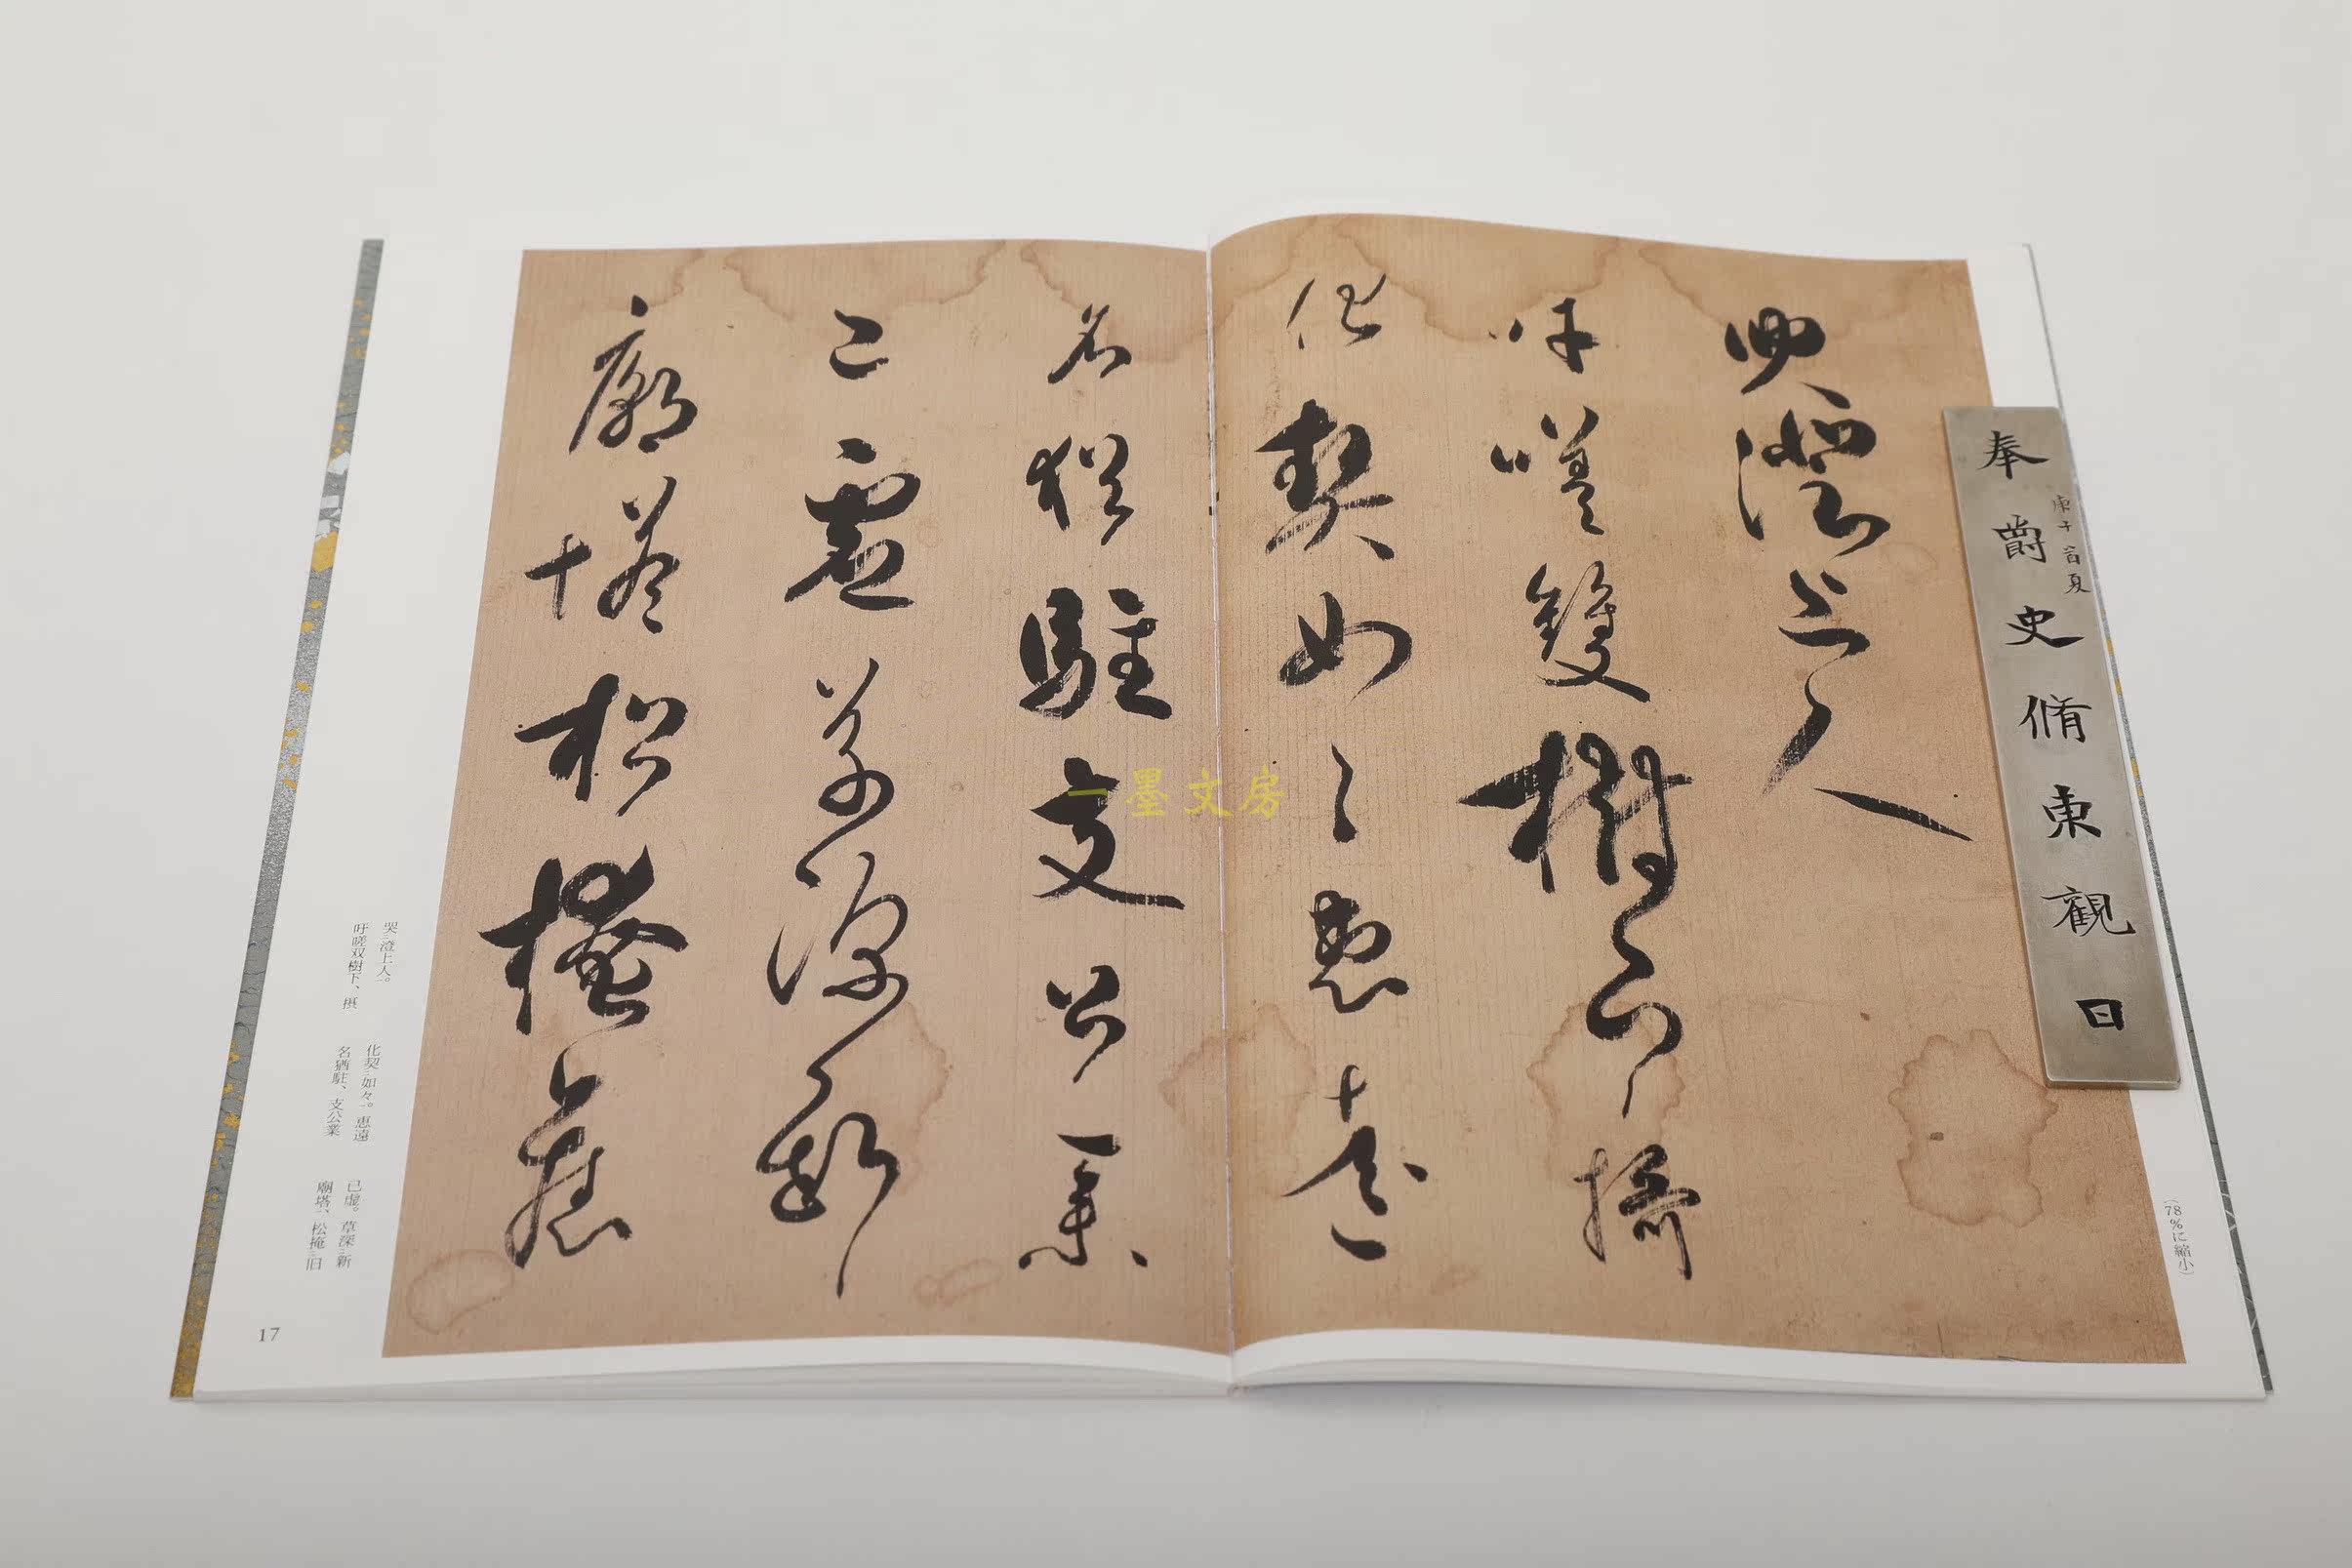 哭澄上人
吁嗟雙樹下攝
化契如々惠遠
名猶駐支公業
已虛草深新
廟塔松掩舊
奉爵史脩東觀日
庚子首夏
一墨文房
哭澄上人。
吁嗟双樹下、摂
化契如々。恵遠
名猶駐、支公業
已虚。草深新
廟塔、松掩旧
17
(78%に縮小)